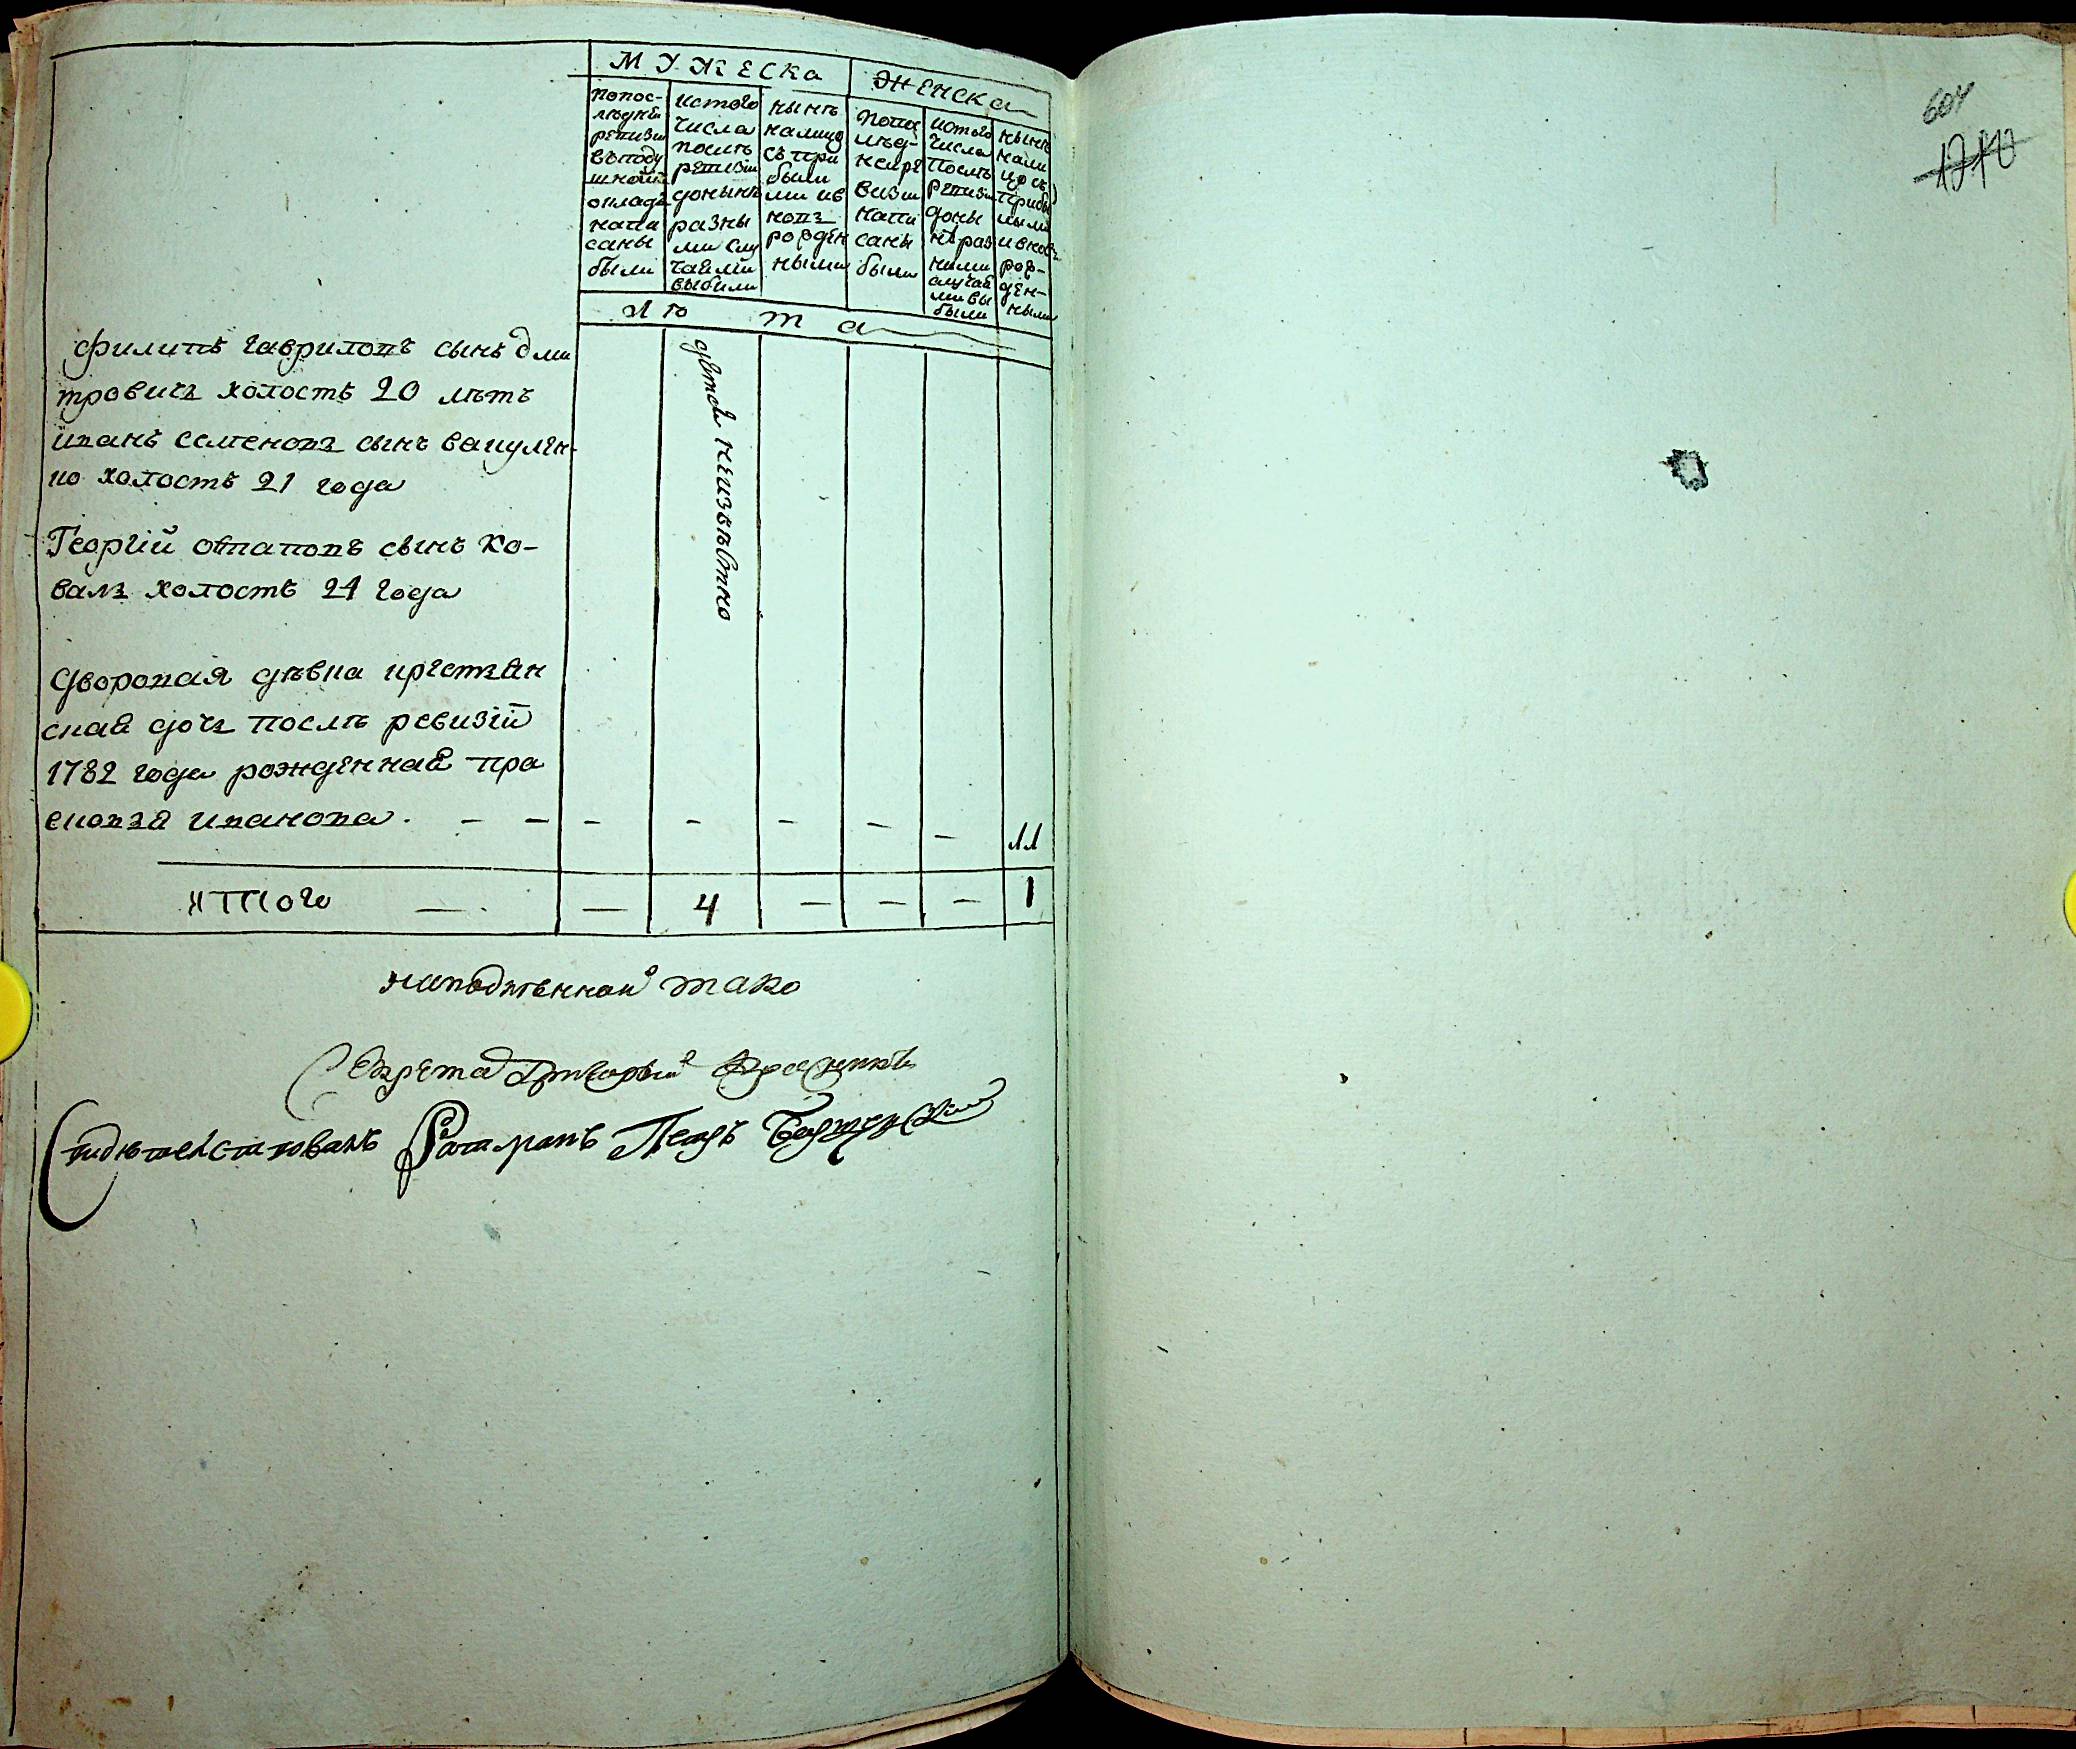 МУЖЕСКА
ЖЕНСКА
попос-
лѣдней
ревизіи
въподу
шномъ
окладѣ
напи
саны
были
истого
числа
послѣ
ревизіи
донынѣ
разны
ми слу
чаями
выбыли
нынѣ
налицо
съ при
были
ми ив
новъ
рожден
ными
попос
лѣд-
ней ре
визіи
напи
саны
были
истого
числа
послѣ
ревизіи
доны
нѣ раз
ными
случая
ми вы
были
нынѣ
нали
цо съ
прибы
лыми
ивновь
рож-
ден-
ными
лѣта
филипъ гавриловъ сынъ дми
тровичъ холостъ 20 лѣтъ
иванъ семеновъ сынъ вакулен-
ко холостъ 21 года
Георгій остаповъ сынъ ко-
валь холостъ 24 года
дѣтей неизвѣстно
дворовая дѣвка крестьян
ская дочь послѣ ревизіи
1782 года рожденная пра
сковья иванова. — — — — — — — 11
итого — — 4 — — — 1
наподленной тако
Секрета Григорей
Свидѣтелствовалъ Ротмранъ Петръ
604
1210